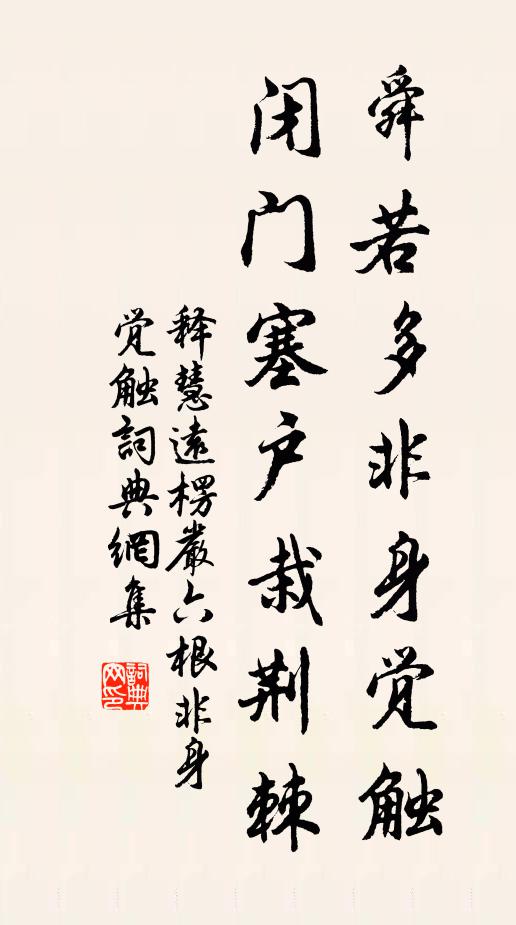 舜若多非身觉触
闭门塞户栽荆棘
释慧遠楞嚴六根非身
觉触詞典網集
詞典网印